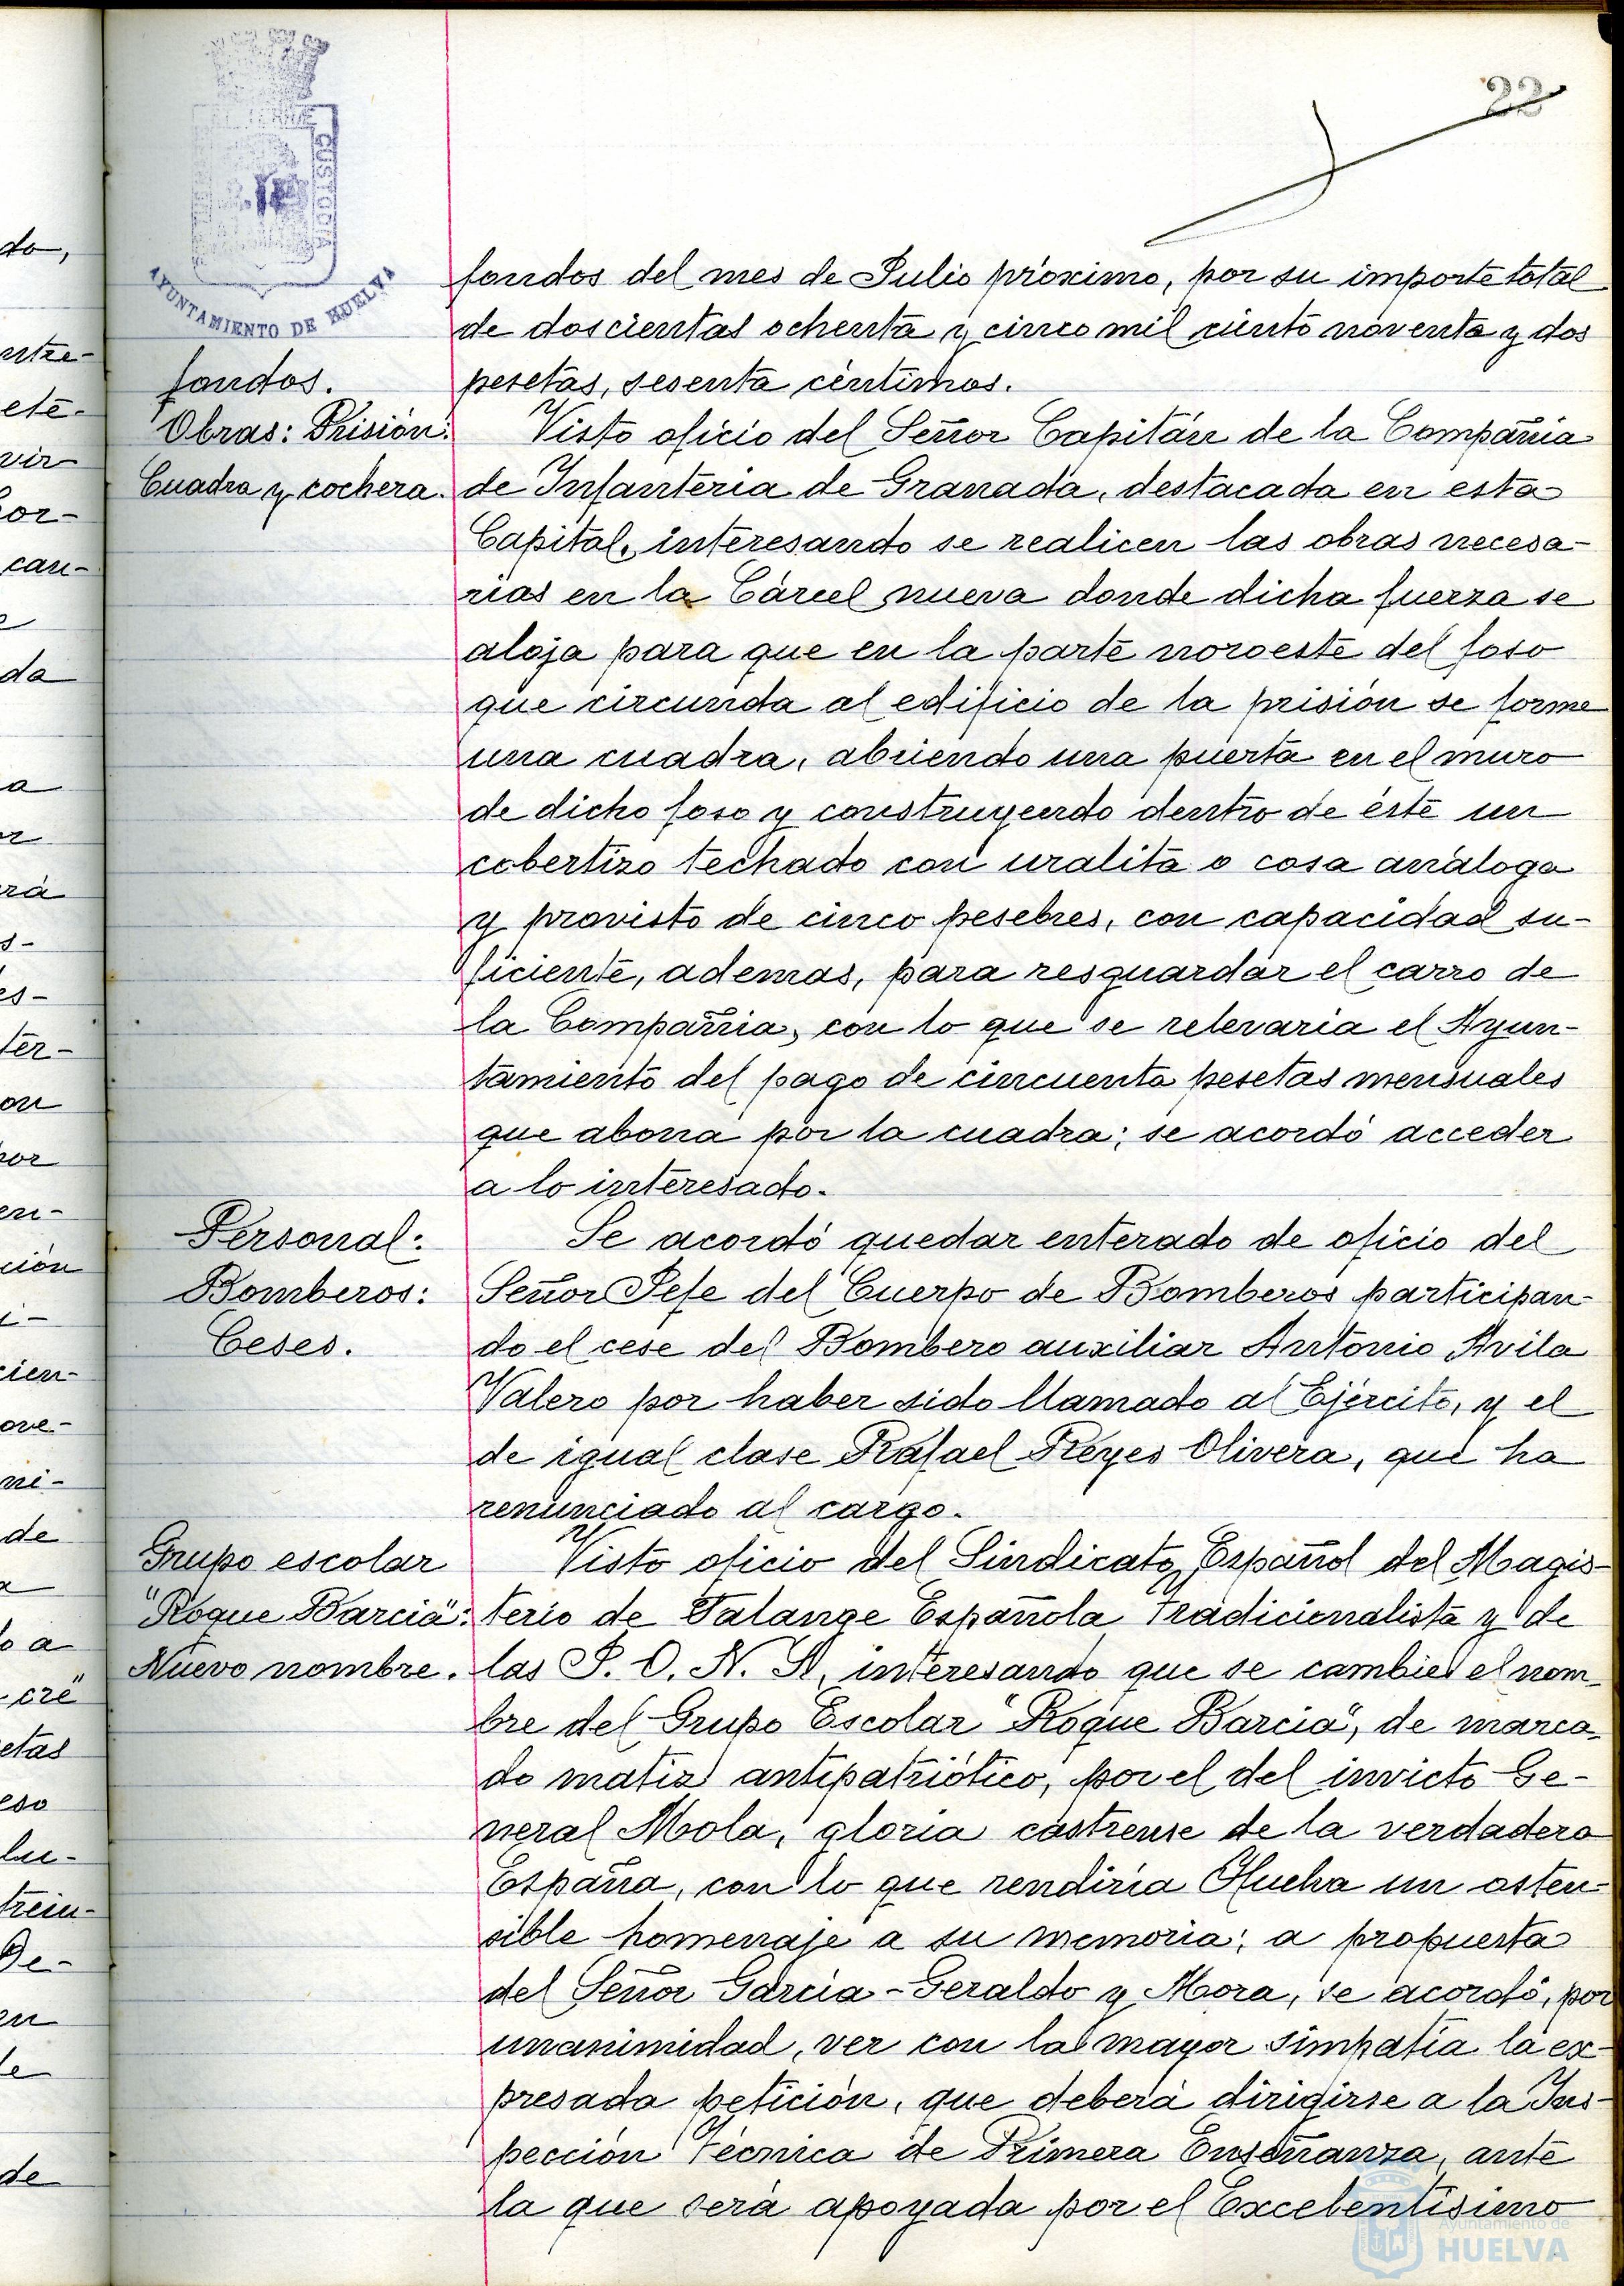 22
CUSTODIA
AYUNTAMIENTO DE HUELVA
fondos del mes de Julio próximo, por su importe total
de doscientas ochenta y cinco mil ciento noventa y dos
fondos.
pesetas, sesenta céntimos.
Obras: Prisión:
Visto oficio del Señor Capitán de la Compañia
Cuadra y cochera.
de Infanteria de Granada, destacada en esta
Capital, interesando se realicen las obras necesa-
rias en la Cárcel nueva donde dicha fuerza se
aloja para que en la parte noroeste del foso
que circunda al edificio de la prisión se forme
una cuadra, abriendo una puerta en el muro
de dicho foso y construyendo dentro de éste un
cobertizo techado con uralita o cosa análoga
y provisto de cinco pesebres, con capacidad su-
ficiente, ademas, para resguardar el carro de
la Compañia, con lo que se relevaria el Ayun-
tamiento del pago de cincuenta pesetas mensuales
que abona por la cuadra; se acordó acceder
a lo interesado.
Personal:
Se acordó quedar enterado de oficio del
Bomberos:
Señor Jefe del Cuerpo de Bomberos participan-
Ceses.
do el cese del Bombero auxiliar Antonio Avila
Valero por haber sido llamado al Ejército, y el
de igual clase Rafael Reyes Olivera, que ha
renunciado al cargo.
Grupo escolar
Visto oficio del Sindicato Español del Magis-
"Roque Barcia":
terio de Falange Española Tradicionalista y de
Nuevo nombre.
las J. O. N. S, interesando que se cambie el nom-
bre del Grupo Escolar "Roque Barcia", de marca-
do matiz antipatriótico, por el del invicto Ge-
neral Mola, gloria castrense de la verdadera
España, con lo que rendiria Huelva un osten-
sible homenaje a su memoria; a propuesta
del Señor Garcia-Geraldo y Mora, se acordó, por
unanimidad, ver con la mayor simpatia la ex-
presada petición, que deberá dirigirse a la Ins-
pección Técnica de Primera Enseñanza, ante
la que será apoyada por el Excelentísimo
Ayuntamiento de
HUELVA